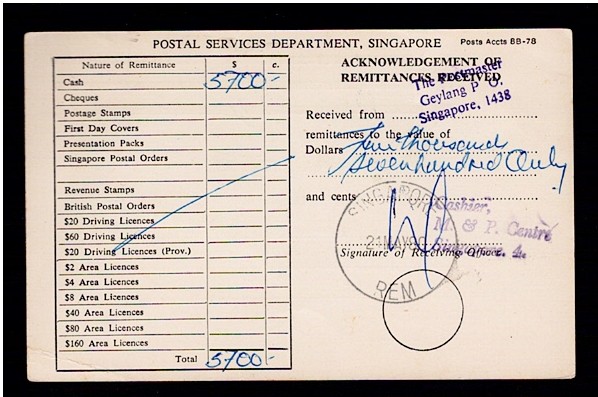 POSTAL SERVICES DEPARTMENT, SINGAPORE Posts Accts BB-78
Nature of Remittance $ c.
Cash 5700-
Cheques
Postage Stamps
First Day Covers
Presentation Packs
Singapore Postal Orders
Revenue Stamps
British Postal Orders
$20 Driving Licences
$60 Driving Licences
$20 Driving Licences (Prov.)
$2 Area Licences
$4 Area Licences
$8 Area Licences
$40 Area Licences
$80 Area Licences
$160 Area Licences
Total 5700-
ACKNOWLEDGEMENT OF
REMITTANCES RECEIVED
The Postmaster
Geylang P. O.
Singapore, 1438
Received from
remittances to the value of
Dollars Five thousand
Seven hundred Only
and cents
SINGAPORE
21 MAY 80
REM.
Cashier,
M. & P. Centre
Singapore. 4.
Signature of Receiving Officer.